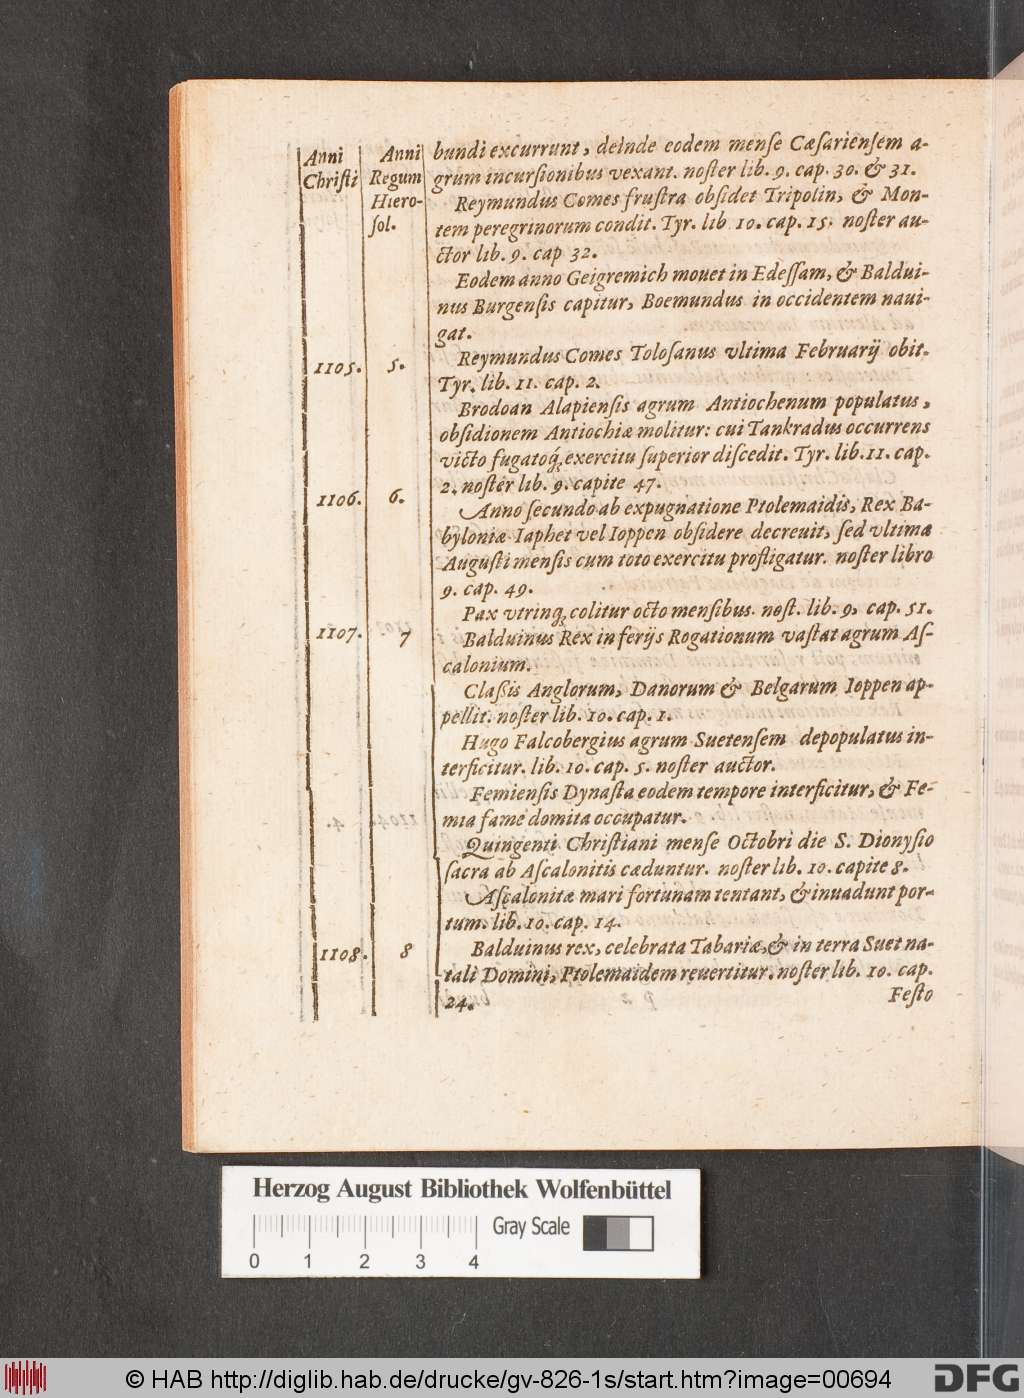 Anni Christi
Anni Regum Hiero-
sol.
bundi excurrunt, deinde eodem mense Cæsariensem a-
grum incursionibus vexant. noster lib. 9. cap. 30. & 31.
Reymundus Comes frustra obsidet Tripolin, & Mon-
tem peregrinorum condit. Tyr. lib 10. cap. 15. noster au-
ctor lib. 9. cap 32.
Eodem anno Geigremich mouet in Edessam, & Baldui-
nus Burgensis capitur, Boemundus in occidentem naui-
gat.
1105. 5. Reymundus Comes Tolosanus vltima Februarij obit.
Tyr. lib. 11. cap. 2.
Brodoan Alapiensis agrum Antiochenum populatus,
obsidionem Antiochiæ molitur: cui Tankradus occurrens
victo fugatoq; exercitu superior discedit. Tyr. lib. 11. cap.
2. noster lib. 9. capite 47.
1106. 6. Anno secundo ab expugnatione Ptolemaidis, Rex Ba-
byloniæ Iaphet vel Ioppen obsidere decreuit, sed vltima
Augusti mensis cum toto exercitu profligatur. noster libro
9. cap. 49.
Pax vtrinq; colitur octo mensibus. nost. lib. 9. cap. 51.
1107. 7 Balduinus Rex in ferijs Rogationum vastat agrum As-
calonium.
Classis Anglorum, Danorum & Belgarum Ioppen ap-
pellit. noster lib. 10. cap. 1.
Hugo Falcobergius agrum Suetensem depopulatus in-
terficitur. lib. 10. cap. 5. noster auctor.
Femiensis Dynasta eodem tempore interficitur, & Fe-
mia fame domita occupatur.
Quingenti Christiani mense Octobri die S. Dionysio
sacra ab Ascalonitis cæduntur. noster lib. 10. capite 8.
Ascalonitæ mari fortunam tentant, & inuadunt por-
tum. lib. 10. cap. 14.
1108. 8 Balduinus rex, celebrata Tabariæ, & in terra Suet na-
tali Domini, Ptolemaidem reuertitur. noster lib. 10. cap.
24.
Festo
Herzog August Bibliothek Wolfenbüttel
Gray Scale
0 1 2 3 4
© HAB http://diglib.hab.de/drucke/gv-826-1s/start.htm?image=00694
DFG